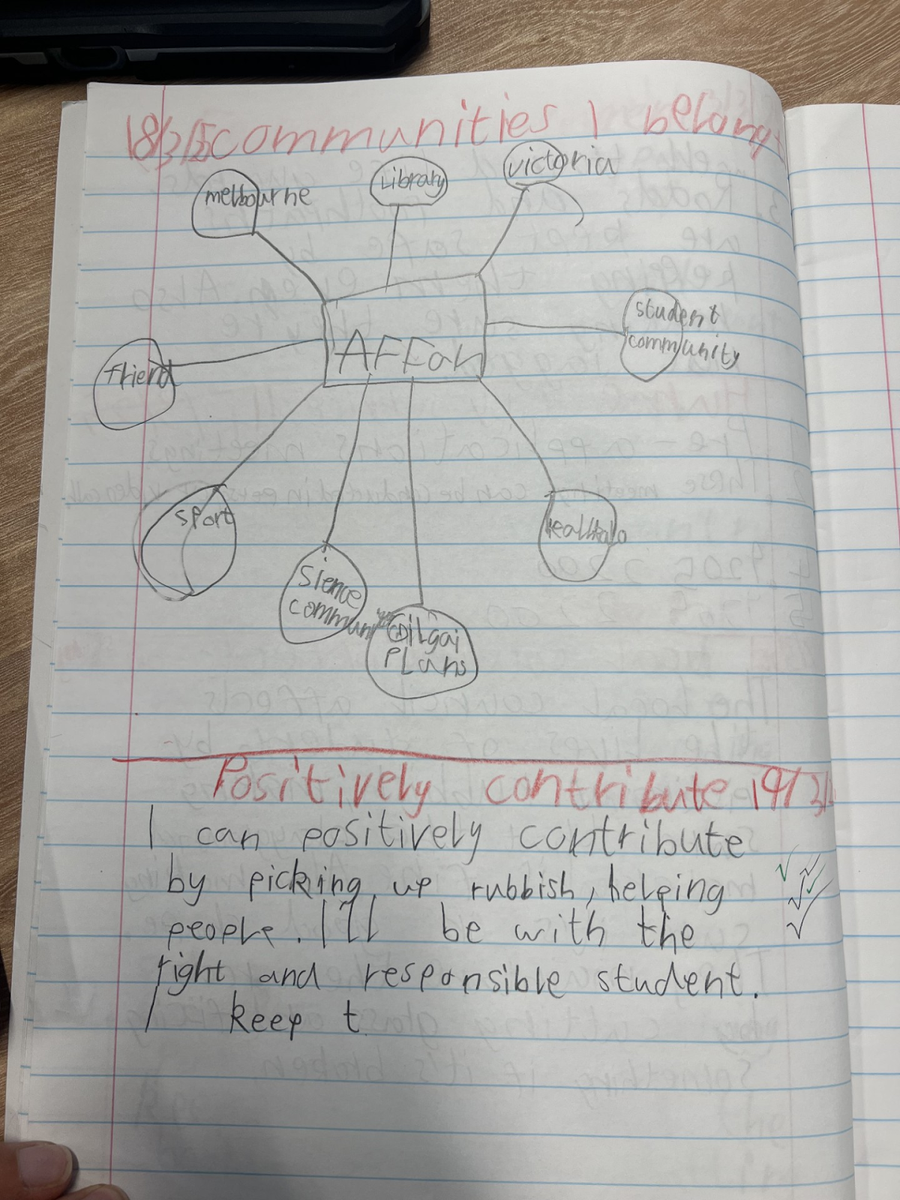 18/3/25 communities I belong
melbourne
Library
victoria
student
community
AFFan
friend
sport
sience
commun
Dilgai
PLans
Positively contribute 19/3/
I can positively contribute
by picking up rubbish, helping
people. I'll be with the
right and responsible student.
I keep t